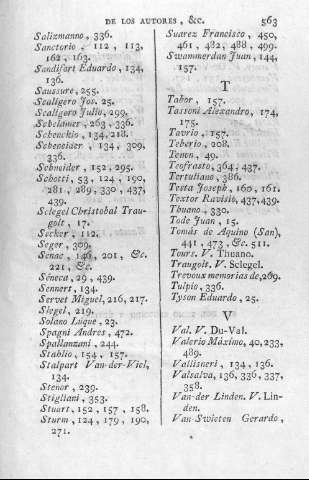 DE LOS AUTORES, &c. 563
Salizmanno, 336.
Sanctorio, 112, 113,
162, 163.
Sandifort Eduardo, 134,
136.
Saussure, 255.
Scaligero Jos. 25.
Scaligero Julio, 299.
Schelamer, 263, 336.
Schenchio, 134, 218.
Scheneider, 134, 309,
336.
Schneider, 152, 295.
Schotti, 53, 124, 190,
281, 289, 330, 437,
439.
Sclegel Christobal Trau-
golt, 17.
Secker, 112.
Seger, 309.
Senac, 146, 201, &c.
221, &c.
Séneca, 29, 439.
Sennert, 134.
Servet Miguel, 216, 217.
Slegel, 219.
Solano Lúque, 23.
Spagni Andres, 472.
Spallanzani, 244.
Stahlio, 154, 157.
Stalpart Van-der-Viel,
134.
Stenor, 239.
Stigliani, 353.
Stuart, 152, 157, 158.
Sturm, 124, 179, 190,
271.
Suarez Francisco, 450,
461, 482, 488, 499.
Swammerdan Juan, 144,
157.
T
Tabor, 157.
Tassoni Alexandro, 174,
175.
Tavrio, 157.
Teberio, 208.
Temon, 49.
Teofrasto, 364, 437.
Tertuliano, 386.
Testa Joseph, 160, 161.
Textor Ravisio, 437, 439.
Thuano, 330.
Tode Juan, 15.
Tomás de Aquino (San),
441, 473, &c. 511.
Tours. V. Thuano.
Traugolt. V. Sclegel.
Trevoux memorias de, 269.
Tulpio, 336.
Tyson Eduardo, 25.
V
Val. V. Du-Val.
Valerio Máximo, 40, 233,
489.
Vallisneri, 134, 136.
Valsalva, 136, 336, 337,
358.
Van-der Linden. V. Lin-
den.
Van-Swieten Gerardo,